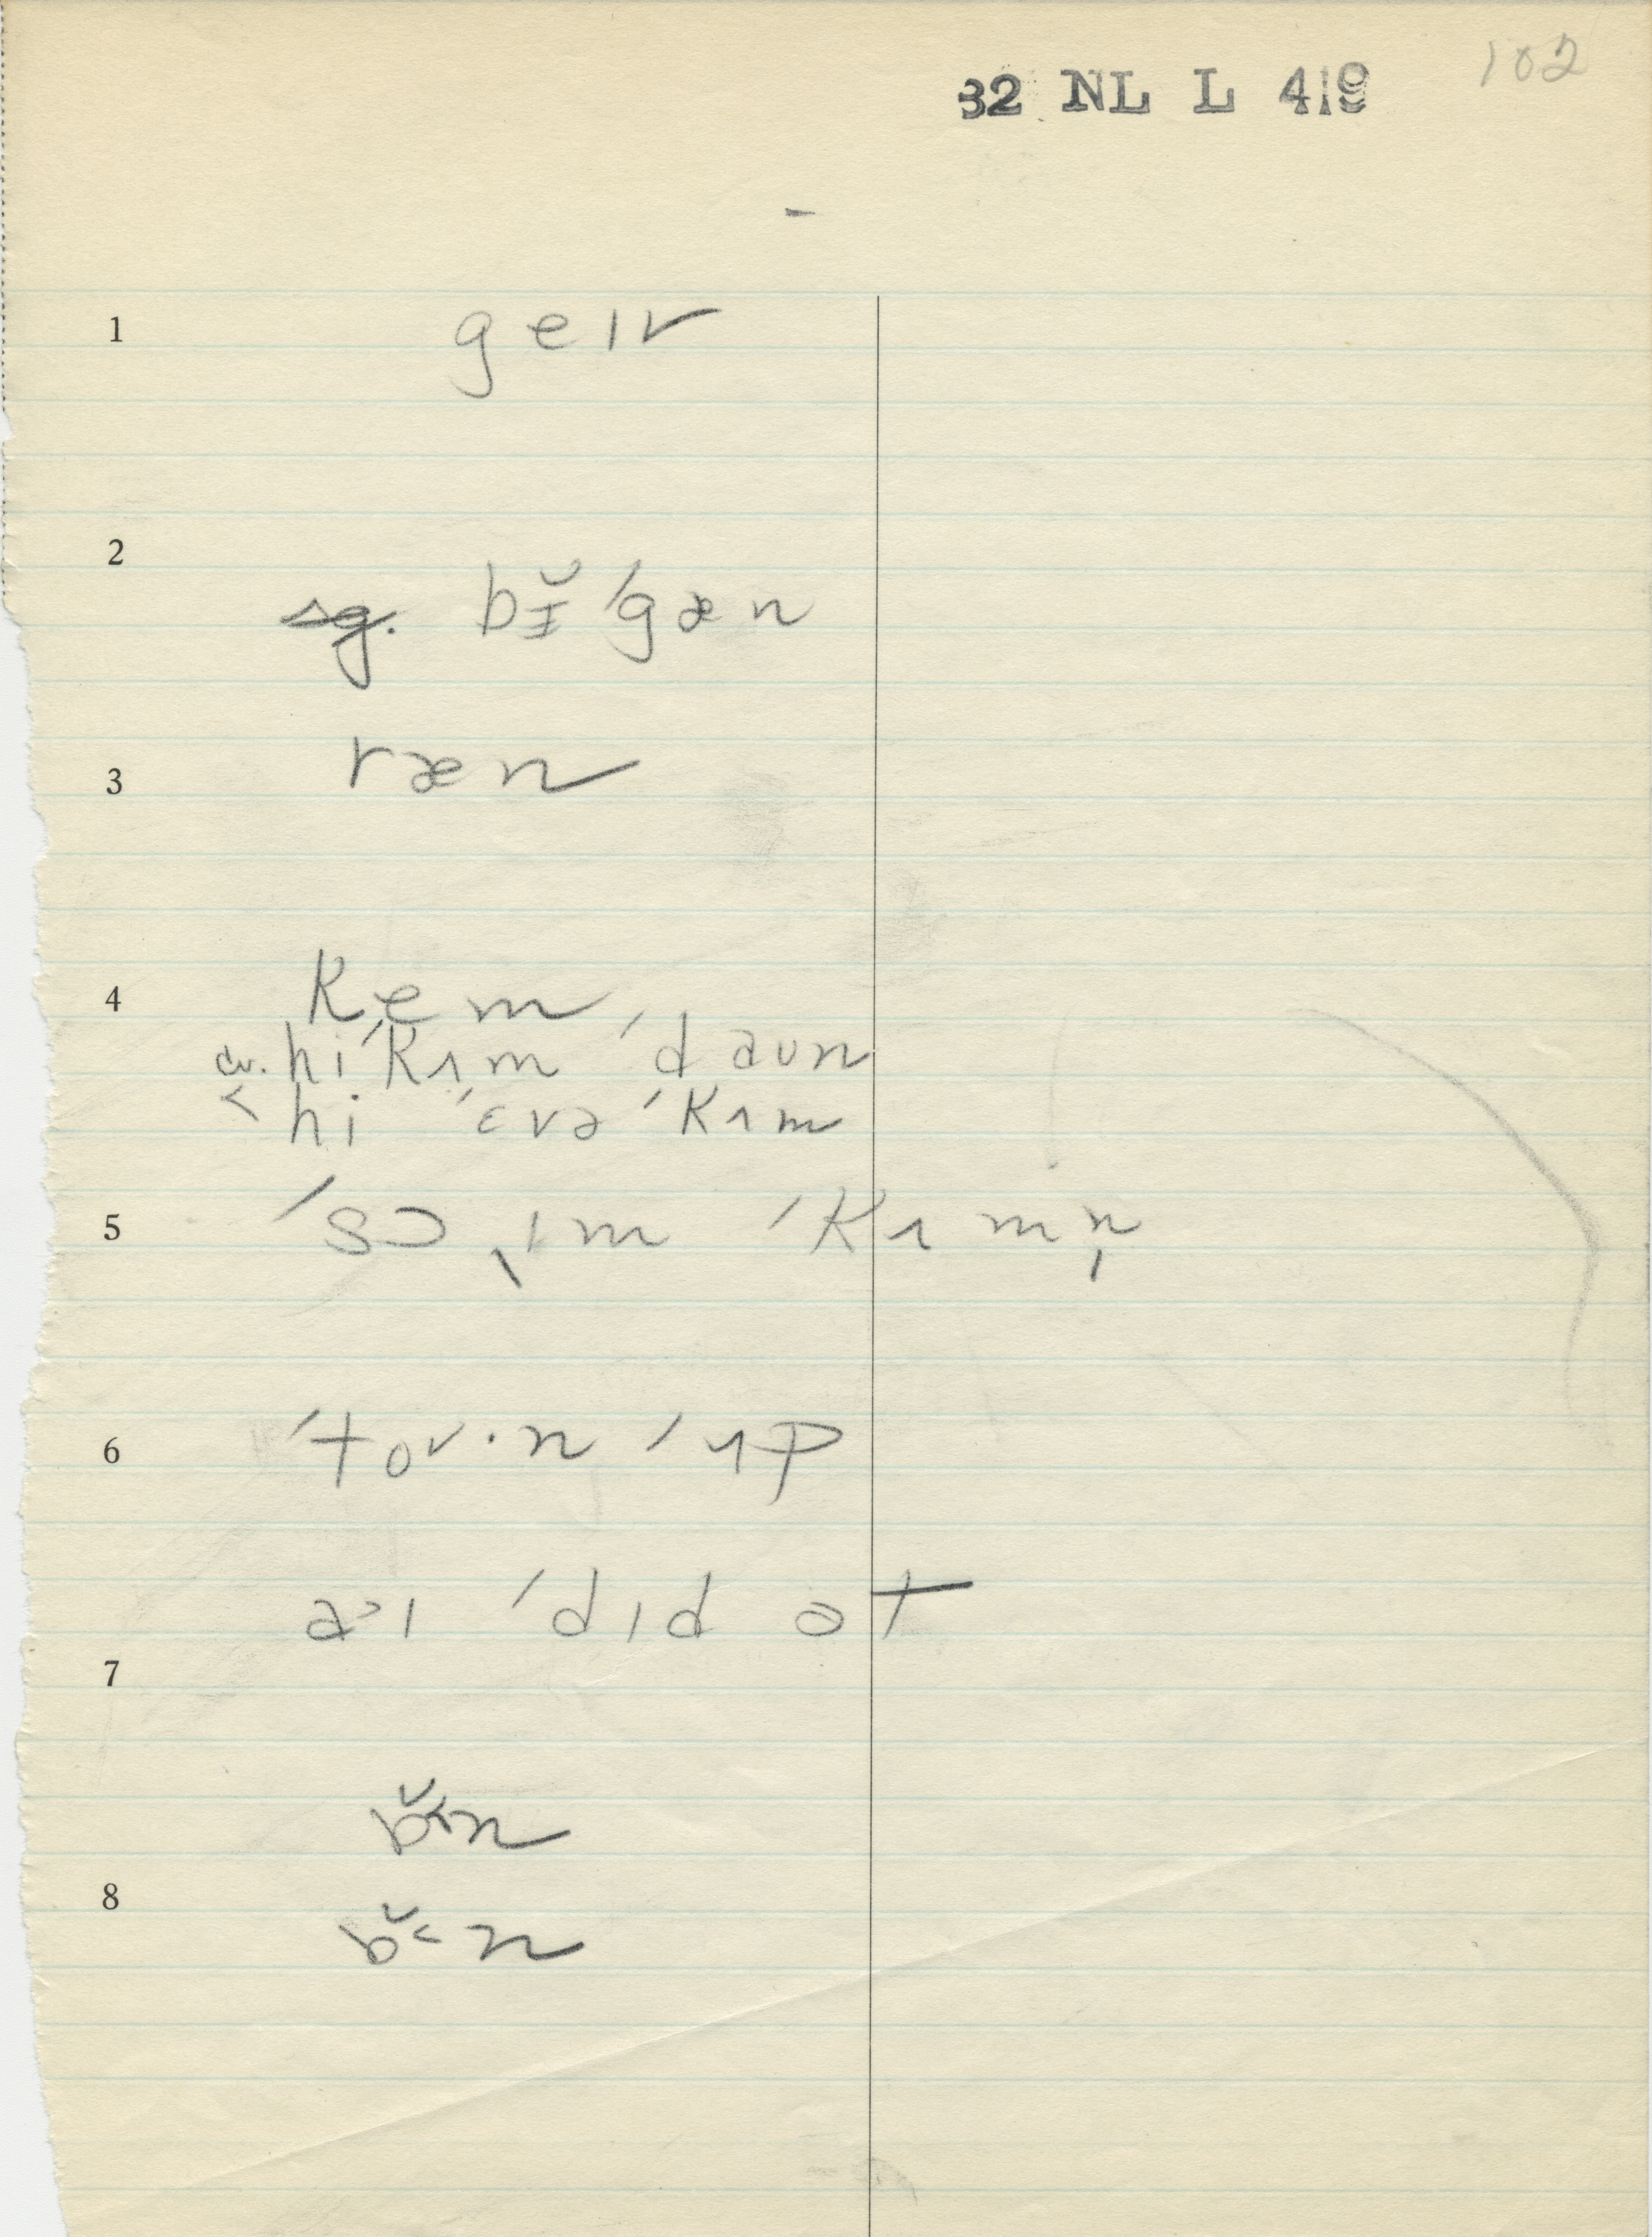 102
32 NL L 419
1 geɪv
2 bɪ̆ ˈgæn
3 ræn
4 kem
cv. hi ˈkʌm ˈdaun
< hi ˈɛvə ˈkʌm
5 ˈsɔ ˌɪm ˈkʌmn̩
6 ˈtɔv·n ˈʌp
a˃ɪ ˈdɪd ət
7
8 bɛ̆n